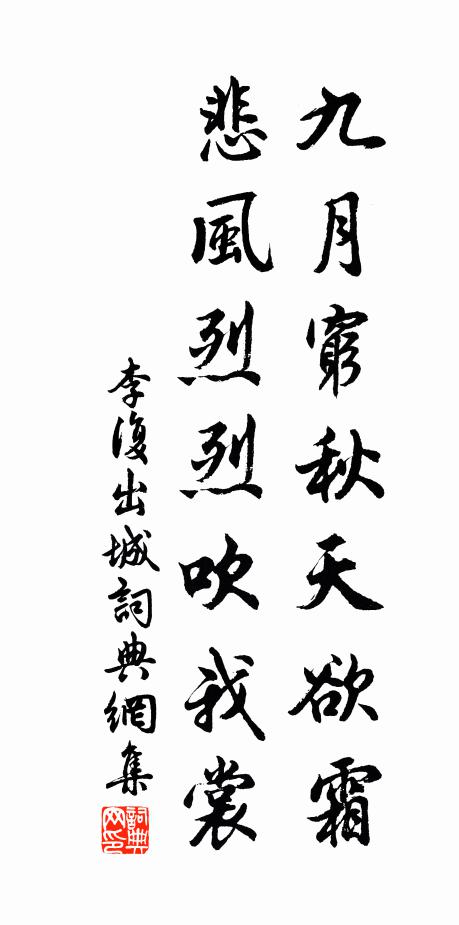 九月窮秋天欲霜
悲風烈烈吹我裳
李復出城詞典網集
詞典网印